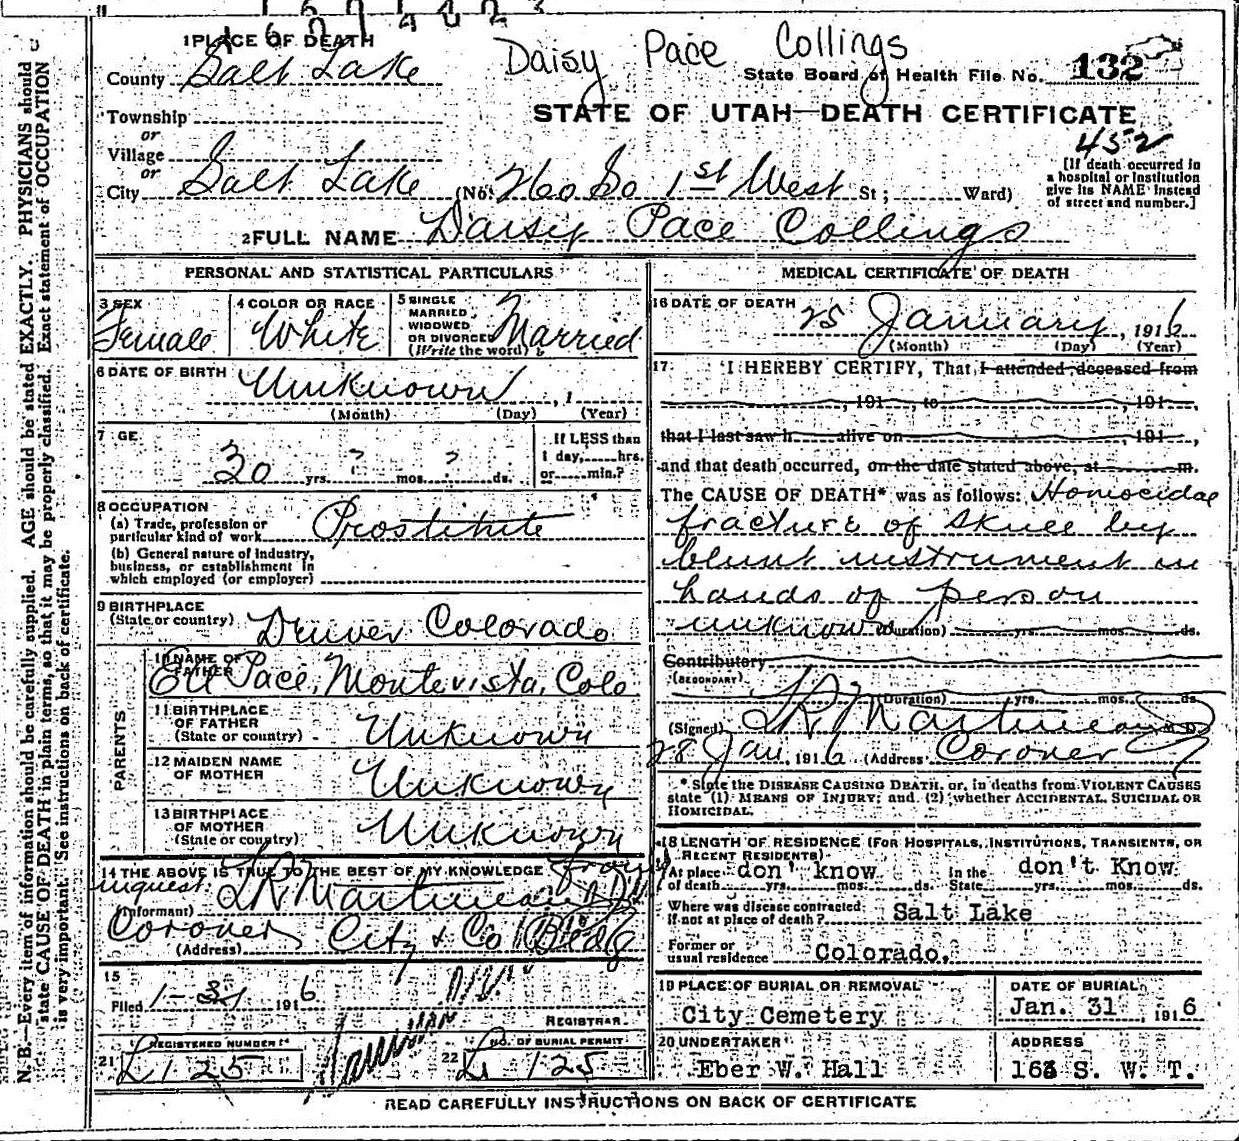 1 PLACE OF DEATH
Daisy Pace Collings
County Salt Lake
State Board of Health File No. 132
Township
or
STATE OF UTAH—DEATH CERTIFICATE
452
Village
or
City Salt Lake (No. 260 So 1st West St; Ward)
[If death occurred in
a hospital or institution
give its NAME instead
of street and number.]
2 FULL NAME Daisy Pace Collings
PERSONAL AND STATISTICAL PARTICULARS
3 SEX
Female
4 COLOR OR RACE
White
5 SINGLE
MARRIED,
WIDOWED
OR DIVORCED
(Write the word)
Married
6 DATE OF BIRTH
Unknown, 1
(Month) (Day) (Year)
7 GE
30 yrs. ? mos. ? ds.
If LESS than
1 day, hrs.
or min.?
8 OCCUPATION
(a) Trade, profession or
particular kind of work Prostitute
(b) General nature of Industry,
business, or establishment in
which employed (or employer)
9 BIRTHPLACE
(State or country) Denver Colorado
PARENTS
10 NAME OF
FATHER
Pace, Montevista, Colo
11 BIRTHPLACE
OF FATHER
(State or country) Unknown
12 MAIDEN NAME
OF MOTHER Unknown
13 BIRTHPLACE
OF MOTHER
(State or country) Unknown
14 THE ABOVE IS TRUE TO THE BEST OF MY KNOWLEDGE from
inquest.
(Informant)
Coroner
(Address) City & Co Bldg
15
Filed 1- 1916
REGISTRAR.
REGISTERED NUMBER
21 L125
NO. OF BURIAL PERMIT
22 L 125
MEDICAL CERTIFICATE OF DEATH
16 DATE OF DEATH
25 January, 1916
(Month) (Day) (Year)
17. I HEREBY CERTIFY, That I attended deceased from
, 191 , to , 191 ,
that I last saw h alive on , 191 ,
and that death occurred, on the date stated above, at m.
The CAUSE OF DEATH* was as follows: Homocidae
fracture of skull by
blunt instrument in
hands of person
unknown (Duration) yrs. mos. ds.
Contributory
(SECONDARY)
(Duration) yrs. mos. ds.
(Signed) M. D.
28 Jan, 1916 (Address) Coroner
* State the DISEASE CAUSING DEATH, or, in deaths from VIOLENT CAUSES
state (1) MEANS OF INJURY; and (2) whether ACCIDENTAL, SUICIDAL OR
HOMICIDAL.
18 LENGTH OF RESIDENCE (FOR HOSPITALS, INSTITUTIONS, TRANSIENTS, OR
RECENT RESIDENTS)
At place
of death don't know yrs. mos. ds.
In the
State don't Know. yrs. mos. ds.
Where was disease contracted
if not at place of death? Salt Lake
Former or
usual residence Colorado.
19 PLACE OF BURIAL OR REMOVAL
City Cemetery
DATE OF BURIAL
Jan. 31, 1916
20 UNDERTAKER
Eber W. Hall
ADDRESS
163 S. W. T.
READ CAREFULLY INSTRUCTIONS ON BACK OF CERTIFICATE
N. B.—Every item of information should be carefully supplied. AGE should be stated EXACTLY. PHYSICIANS should
state CAUSE OF DEATH in plain terms, so that it may be properly classified. Exact statement of OCCUPATION
is very important. See instructions on back of certificate.